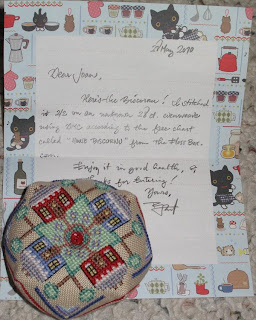 21 May 2010
Dear Joann,
Here's the Biscornu! I stitched
it 2/2 on an unknown 28 ct. evenweave
using DMC according to the free chart
called "HOME BISCORNU" from the Floss Box.
Enjoy it in good health, &
thanks for entering!
Yours,